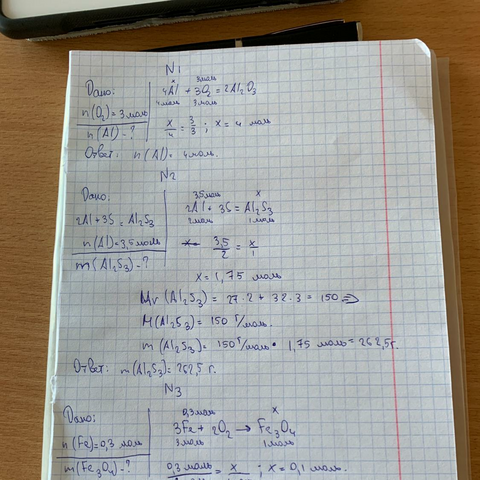 N1
Дано:
n(O₂)=3 моль
n(Al)-?
x 3 моль
4Al + 3O₂ = 2Al₂O₃
4 моль 3 моль
x/4 = 3/3 ; x = 4 моль
Ответ: n(Al)= 4 моль.
N2
Дано:
2Al+3S=Al₂S₃
n(Al)=3,5 моль
m(Al₂S₃)-?
3,5 моль x
2Al + 3S = Al₂S₃
2 моль 1 моль
3,5/2 = x/1
x = 1,75 моль
Mr(Al₂S₃) = 27·2 + 32·3 = 150 ⇒
M(Al₂S₃) = 150 г/моль.
m(Al₂S₃) = 150 г/моль · 1,75 моль = 262,5 г.
Ответ: m(Al₂S₃)= 262,5 г.
N3
Дано:
n(Fe)=0,3 моль
m(Fe₃O₄)-?
0,3 моль x
3Fe + 2O₂ → Fe₃O₄
3 моль 1 моль
0,3 моль = x ; x = 0,1 моль.